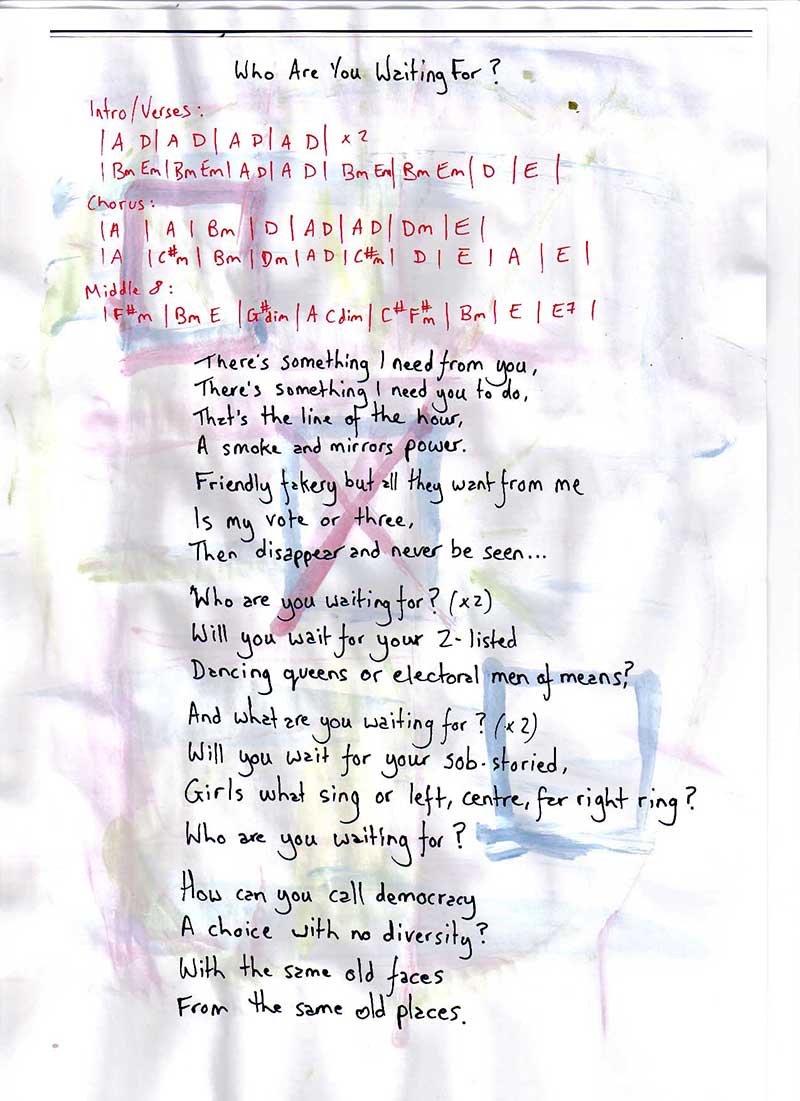 Who Are You Waiting For?
Intro/Verses:
| A D | A D | A D | A D | x 2
| Bm Em | Bm Em | A D | A D | Bm Em | Bm Em | D | E |
Chorus:
| A | A | Bm | D | A D | A D | Dm | E |
| A | C#m | Bm | Dm | A D | C#m | D | E | A | E |
Middle 8:
| F#m | Bm E | G#dim | A Cdim | C# F#m | Bm | E | E7 |
There's something I need from you,
There's something I need you to do,
That's the line of the hour,
A smoke and mirrors power.
Friendly fakery but all they want from me
Is my vote or three,
Then disappear and never be seen...
Who are you waiting for? (x2)
Will you wait for your Z-listed
Dancing queens or electoral men of means?
And what are you waiting for? (x2)
Will you wait for your sob-storied,
Girls what sing or left, centre, far right ring?
Who are you waiting for?
How can you call democracy
A choice with no diversity?
With the same old faces
From the same old places.